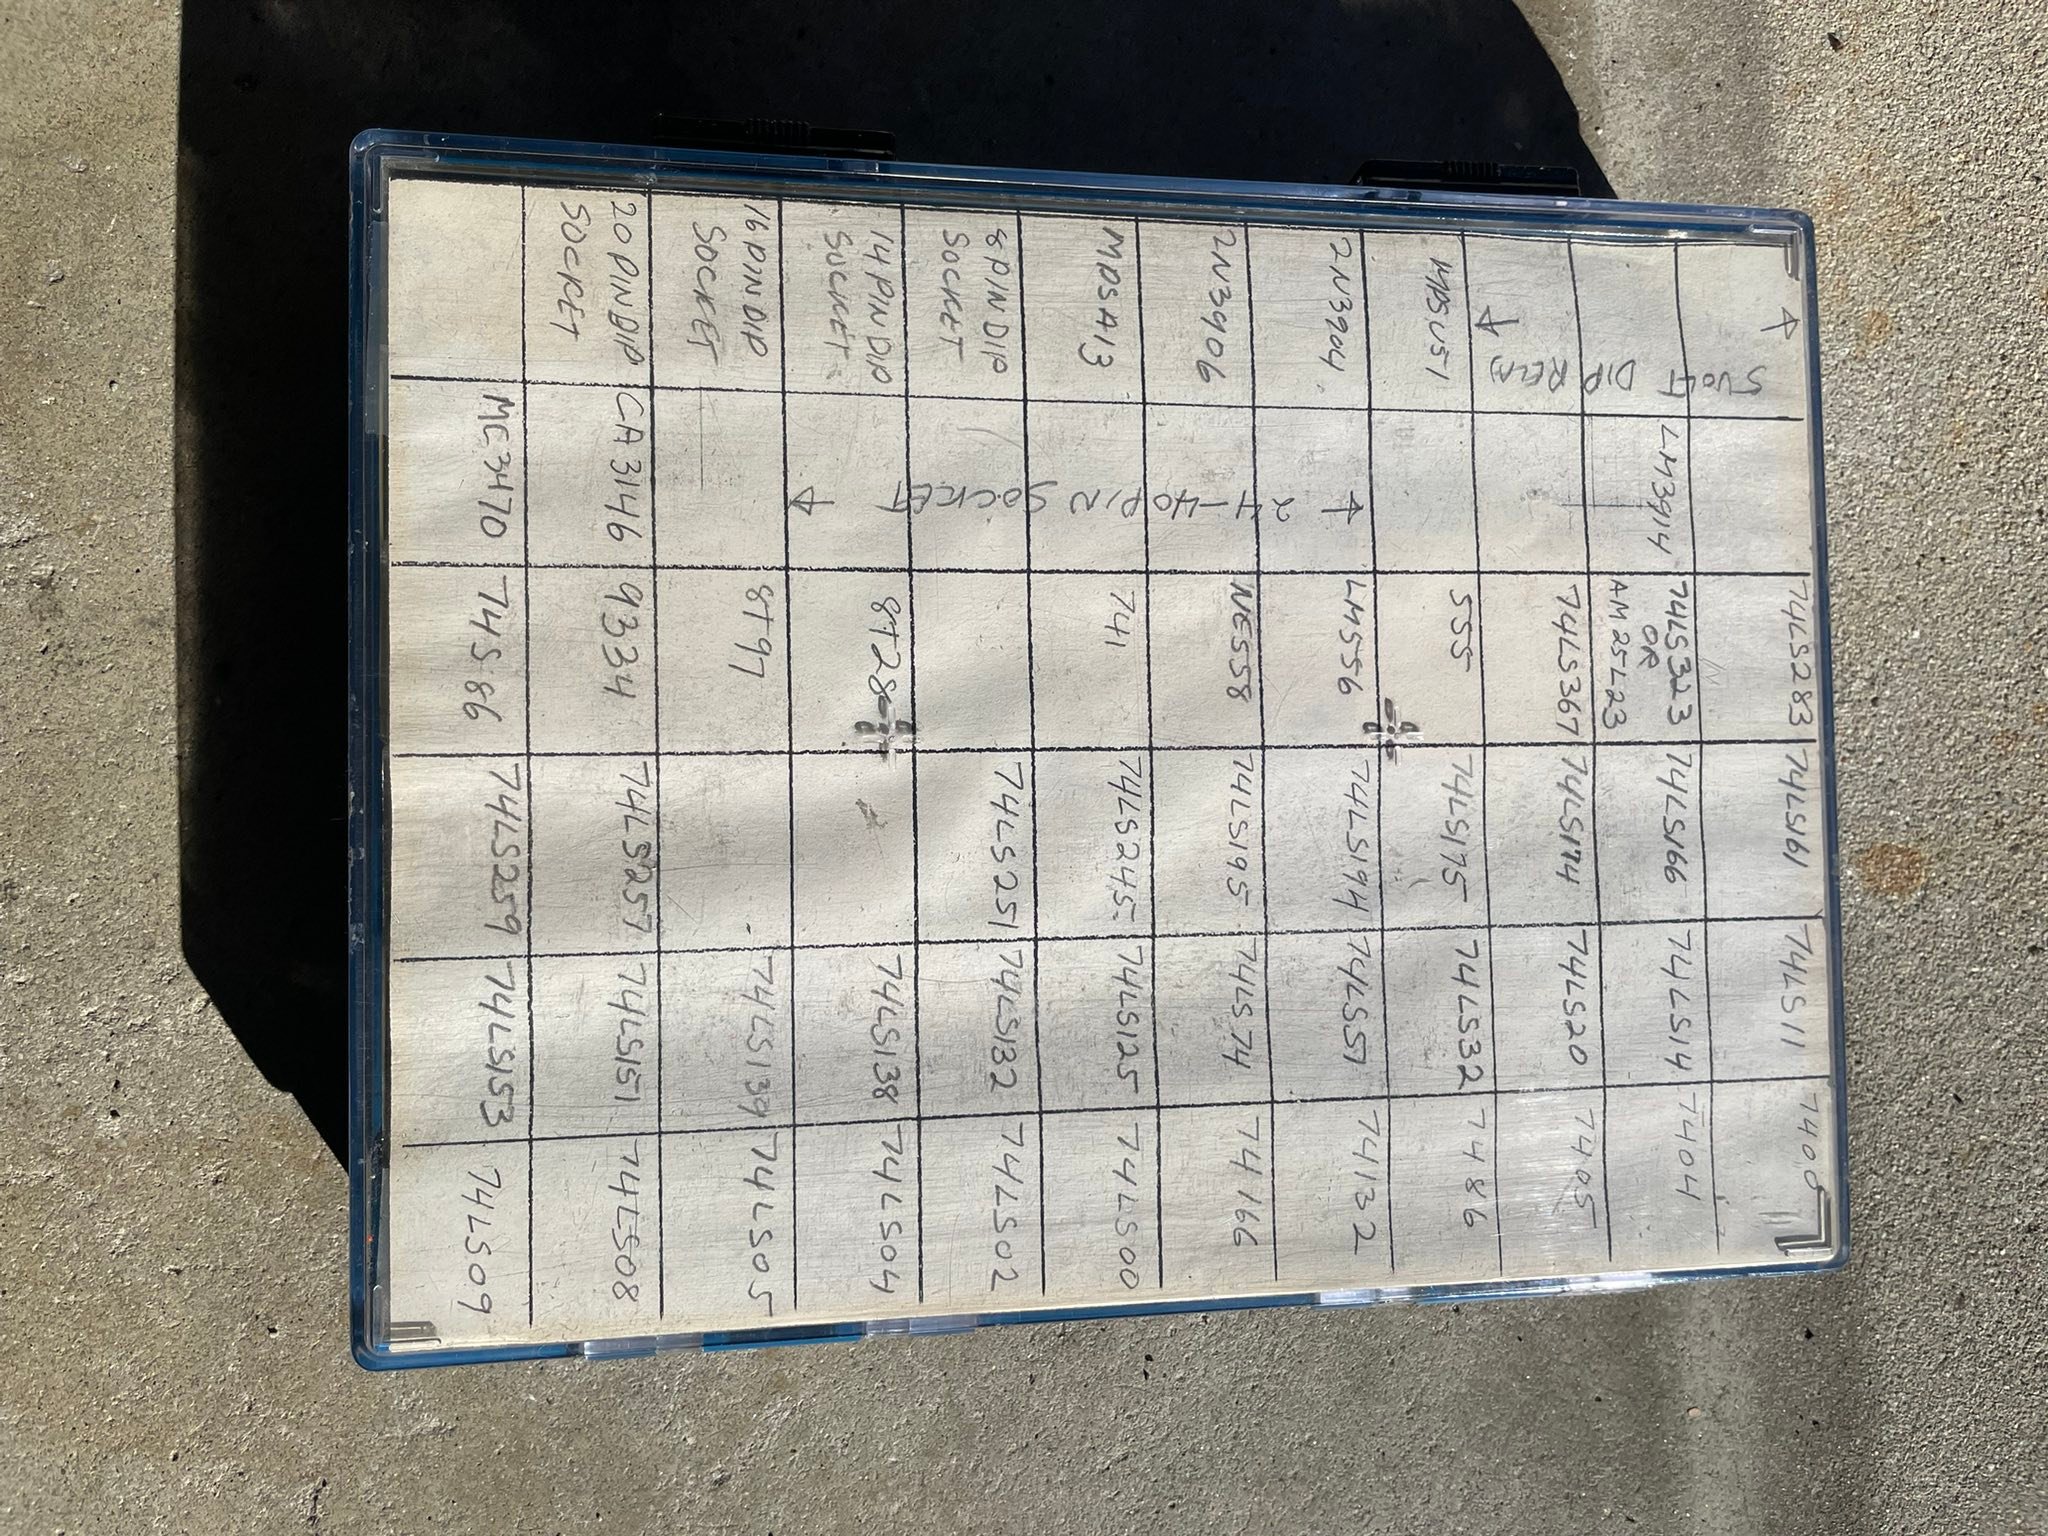 5 VOLT DIP RELAY
74LS283 74LS161 74LS11 7400
LM3914 74LS323 74LS166 74LS14 7404
OR
AM25L23
74LS367 74LS174 74LS20 7405
MPSU51 555 74LS175 74LS32 7486
24-40 PIN SOCKET
2N3904 LM556 74LS194 74LS51 74132
2N3906 NE558 74LS195 74LS74 74166
MPSA13 741 74LS245 74LS125 74LS00
8 PIN DIP 74LS251 74LS132 74LS02
SOCKET
14 PIN DIP 8T28 74LS138 74LS04
SOCKET
16 PIN DIP 8T97 74LS139 74LS05
SOCKET
20 PIN DIP CA3146 9334 74LS257 74LS151 74LS08
SOCKET
MC3470 74S86 74LS259 74LS153 74LS09